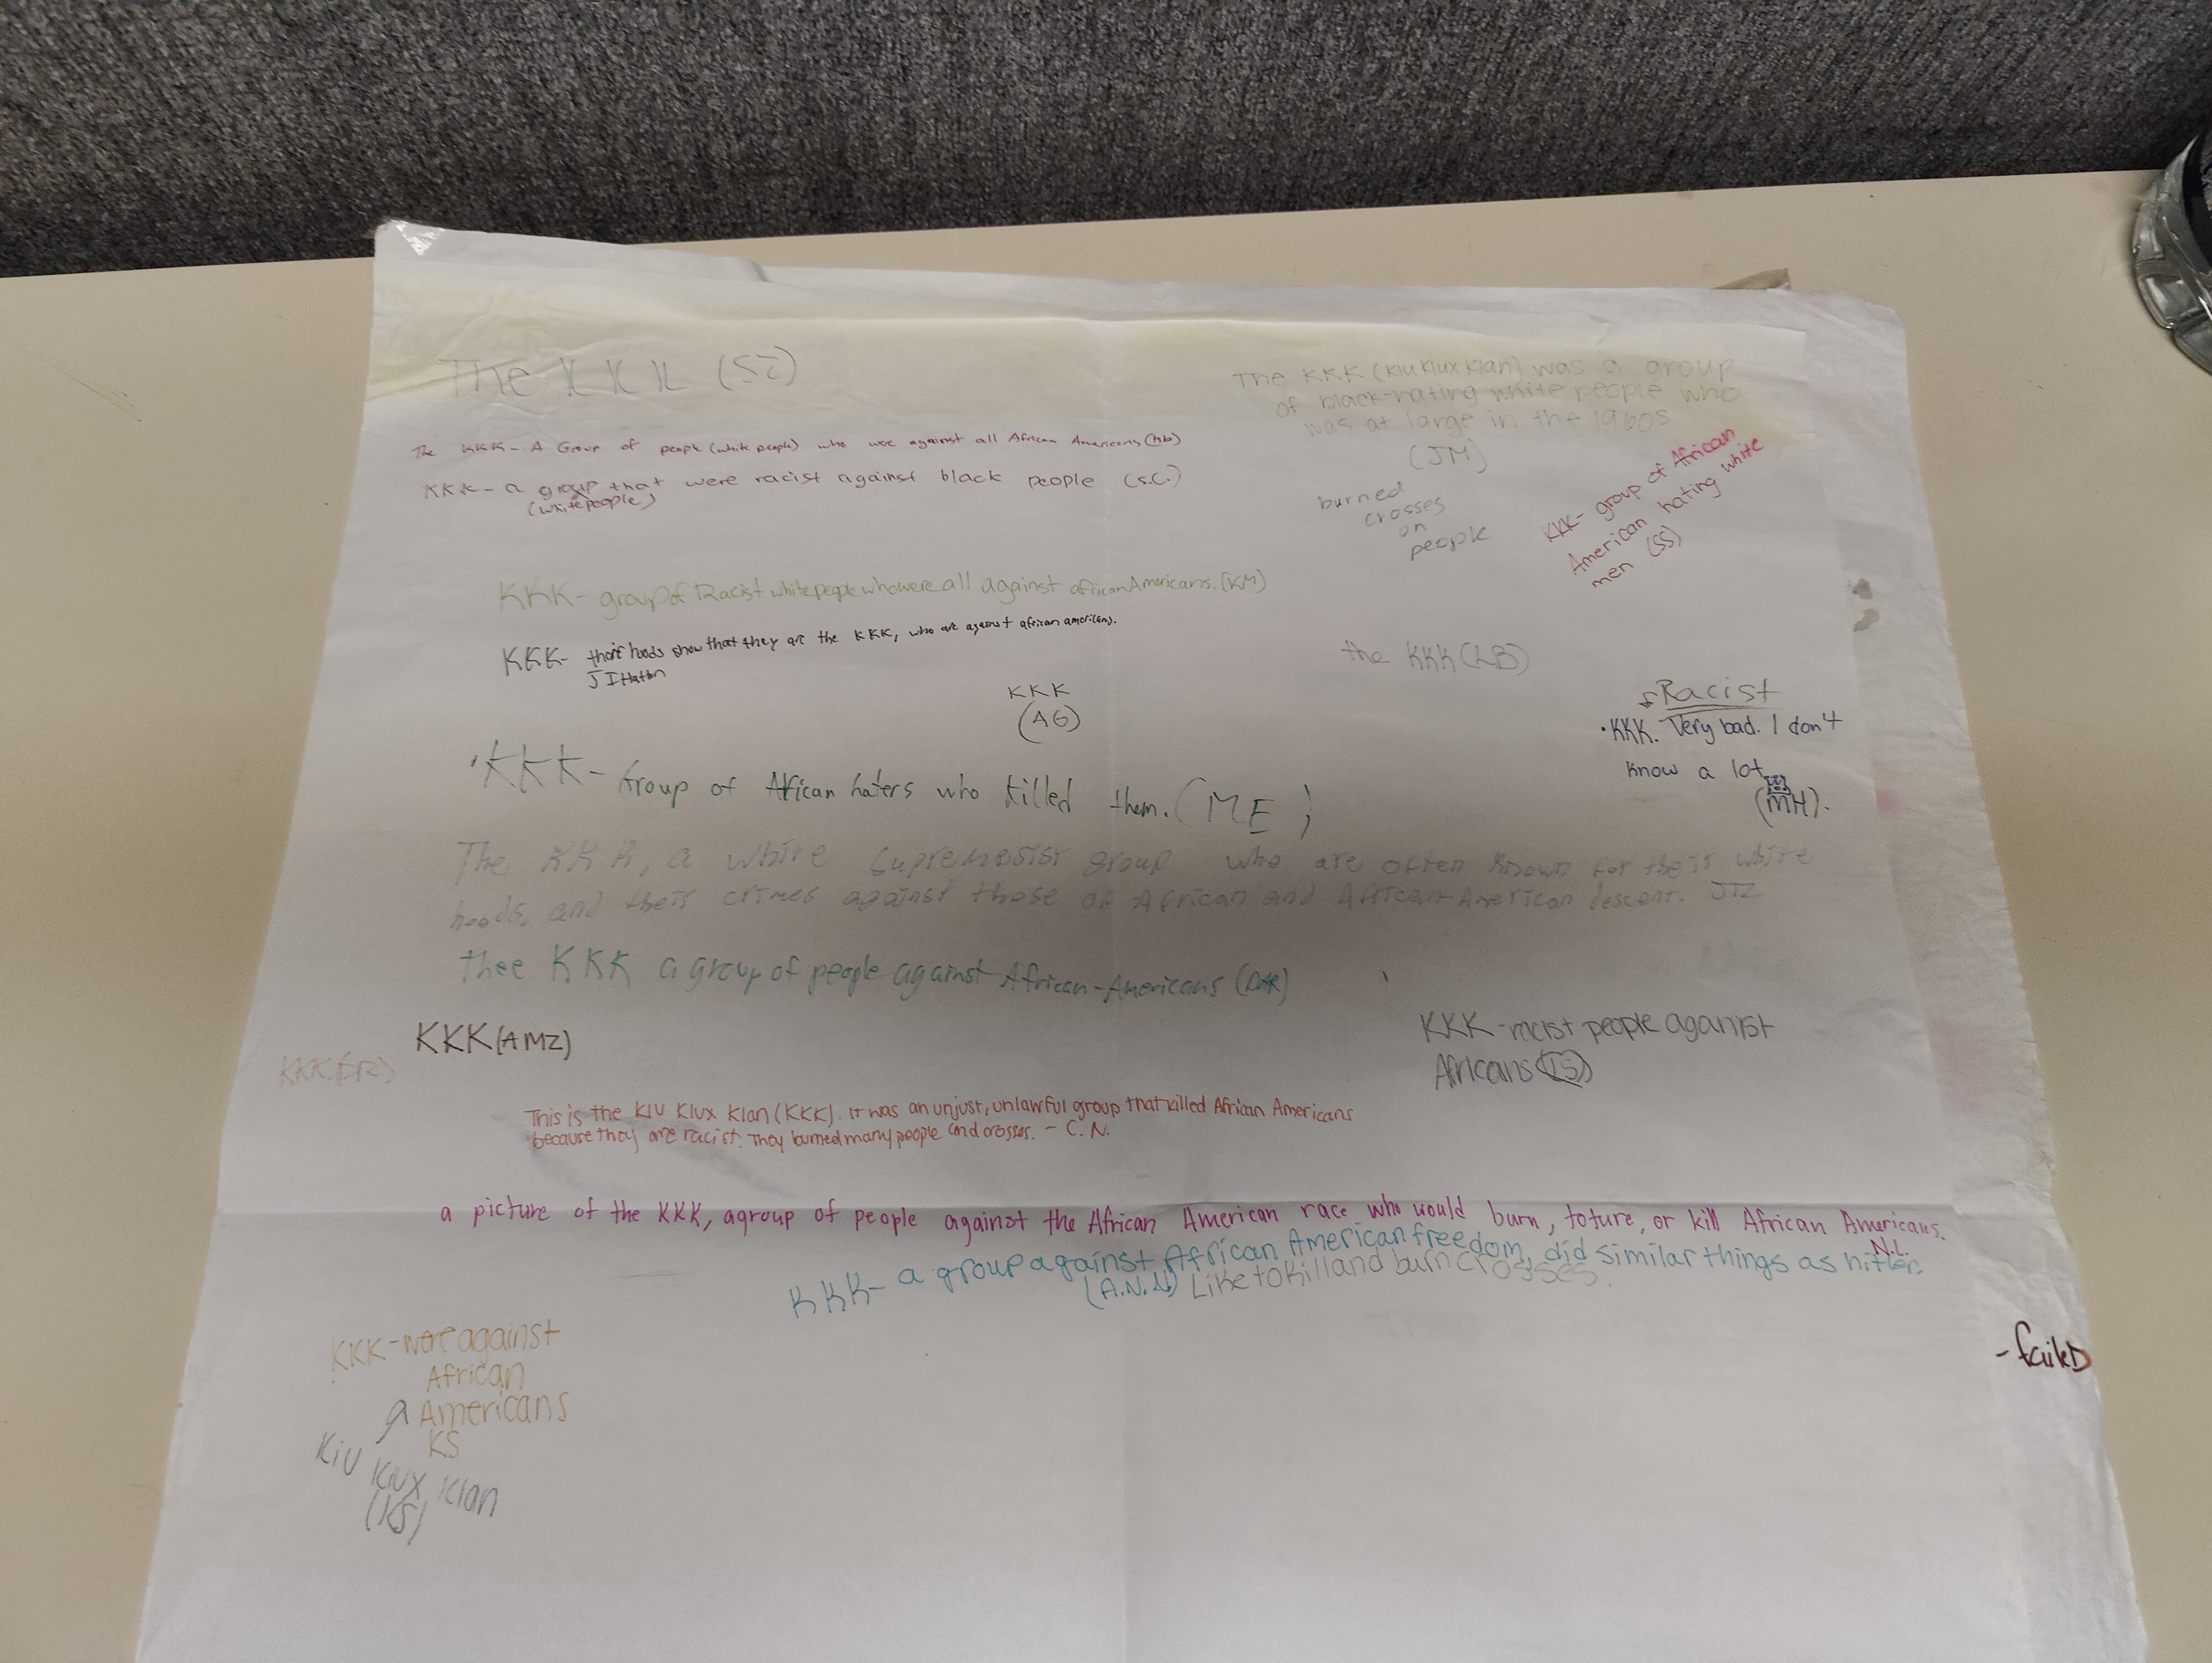 The KKK (SZ)
The KKK (Klu Klux Klan) was a group
of black-hating white people who
was at large in the 1960s
(JM)
The KKK- A Group of people (white people) who were against all African Americans
KKK- a group that were racist against black people (S.C.)
(white people)
burned
crosses
on
people
KKK- group of African
American hating white
men (SS)
KKK- group of Racist white people who were all against african Americans. (KM)
KKK- hoods show that they are the KKK, who are against african americans.
the KKK (LB)
KKK
(AG)
Racist
•KKK. Very bad. I don't
know a lot
(MH).
'KKK- Group of African haters who killed them. (ME)
The KKK, a white supremasist group who are often known for their white
hoods, and their crimes against those of African and African-American descent. JTZ
thee KKK a group of people against African-Americans
KKK (AMZ)
KKK
KKK-racist people aganist
Africans
This is the Klu Klux Klan (KKK). It was an unjust, unlawful group that killed African Americans
because they are racist. They burned many people and crosses. - C.N.
a picture of the KKK, agroup of people against the African American race who would burn, toture, or kill African Americans.
N.L.
KKK- a group against African American freedom, did similar things as hitler.
(A.N.N) Like to kill and burn crosses.
KKK-were against
African
Americans
KS
Klu Klux Klan
(KS)
-failed